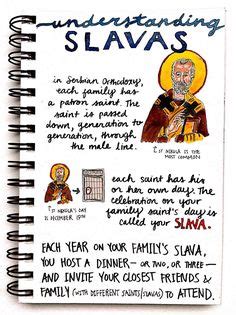 understanding
SLAVAS
in Serbian Orthodoxy,
each family has
a patron saint. The
saint is passed
down, generation to
generation, through
the male line.
ST NIKOLA IS THE
MOST COMMON
each saint has his
or her own day. The
celebration on your
family saint's day is
called your SLAVA.
ST NIKOLA'S DAY
IS DECEMBER 19TH
EACH YEAR ON YOUR FAMILY'S SLAVA,
YOU HOST A DINNER — OR TWO, OR THREE —
AND INVITE YOUR CLOSEST FRIENDS &
FAMILY (WITH DIFFERENT SAINTS/SLAVAS) TO ATTEND.